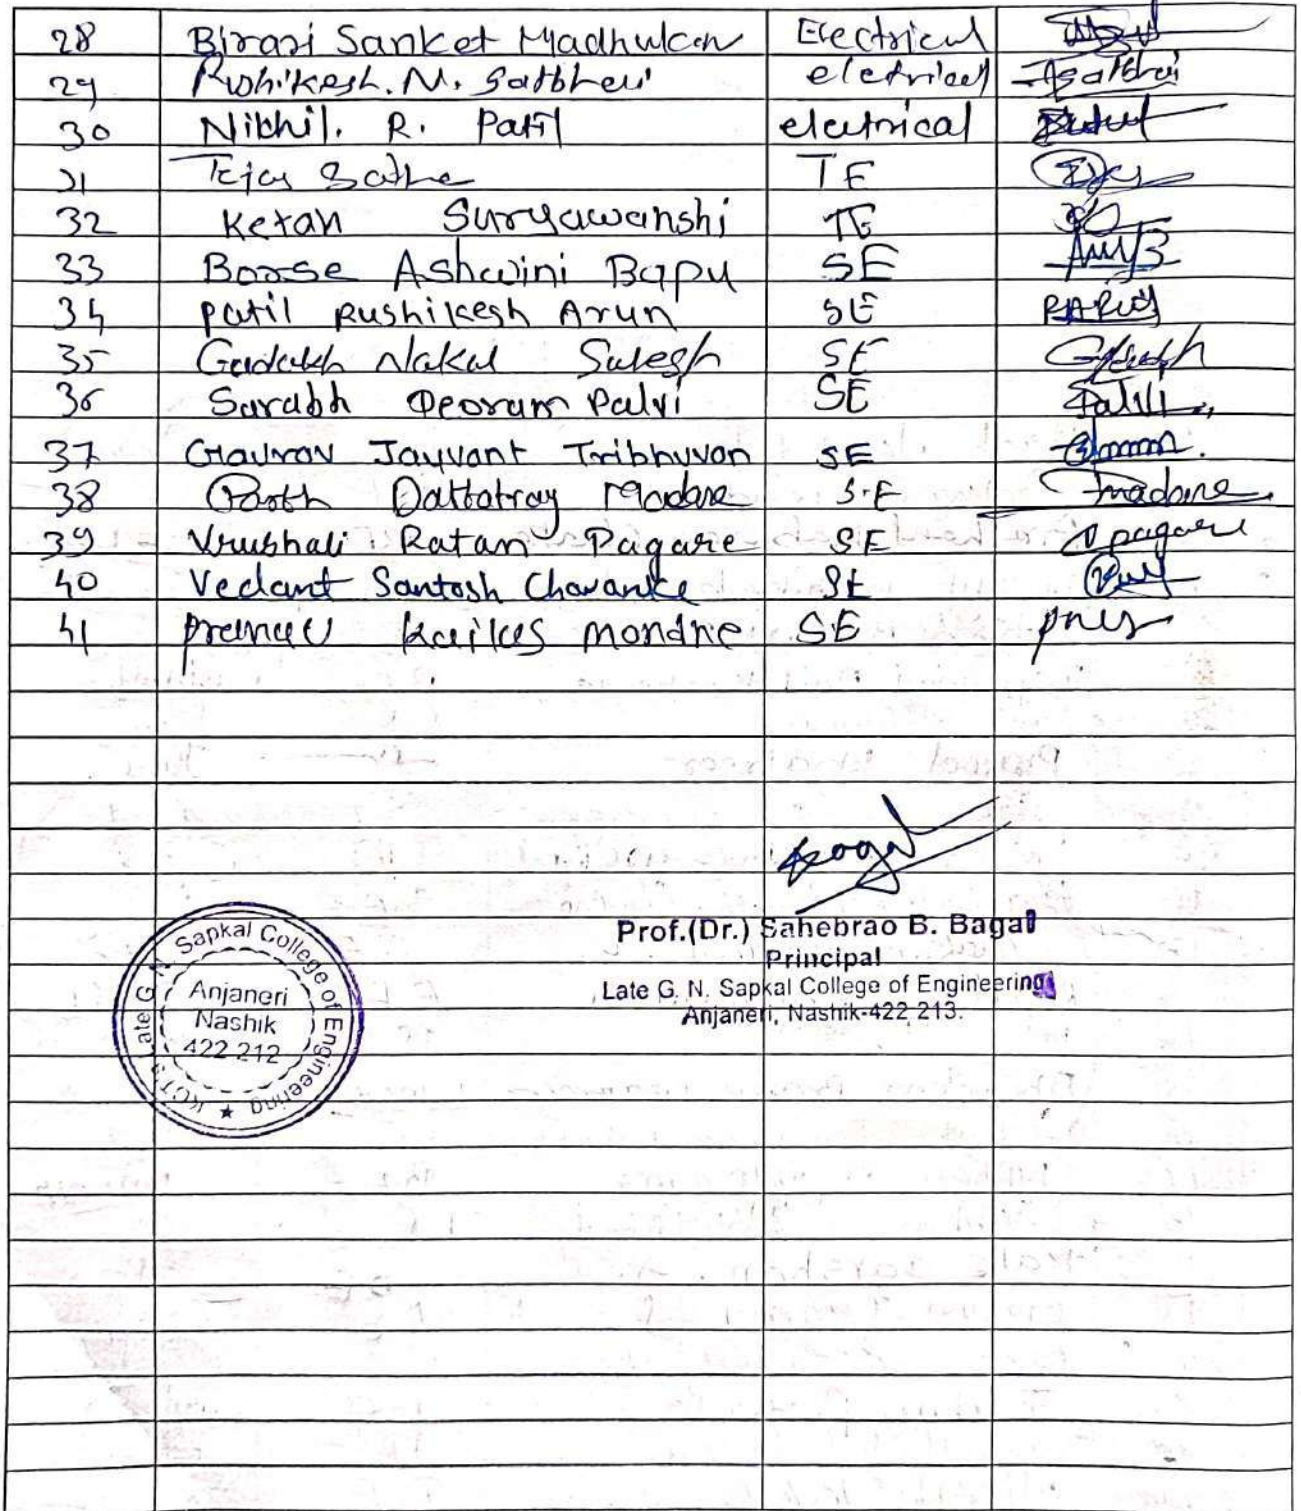 28 Birari Sanket Madhukar Electrical
29 Rushikesh. N. Satbhai eletrical Satbhai
30 Nikhil. R. Patil eletrical
31 Tejas Sathe TE
32 Ketan Suryawanshi TE
33 Boose Ashwini Bapu SE
34 patil Rushikesh Arun SE
35 Gadakh Nakul Suresh SE
36 Sarabh Deoram Palvi SE Palvi
37 Gaurav Jayvant Tribhuvan SE
38 Parth Dattatray Madane S.E madane
39 Vrushali Ratan Pagare SE Vpagare
40 Vedant Santosh Chavanke SE
41 pranav kailas mondhe SE
Prof.(Dr.) Sahebrao B. Bagal
Principal
Late G. N. Sapkal College of Engineering
Anjaneri, Nashik-422 213.
KCT's Late G. N. Sapkal College of Engineering ★
Anjaneri
Nashik
422 212